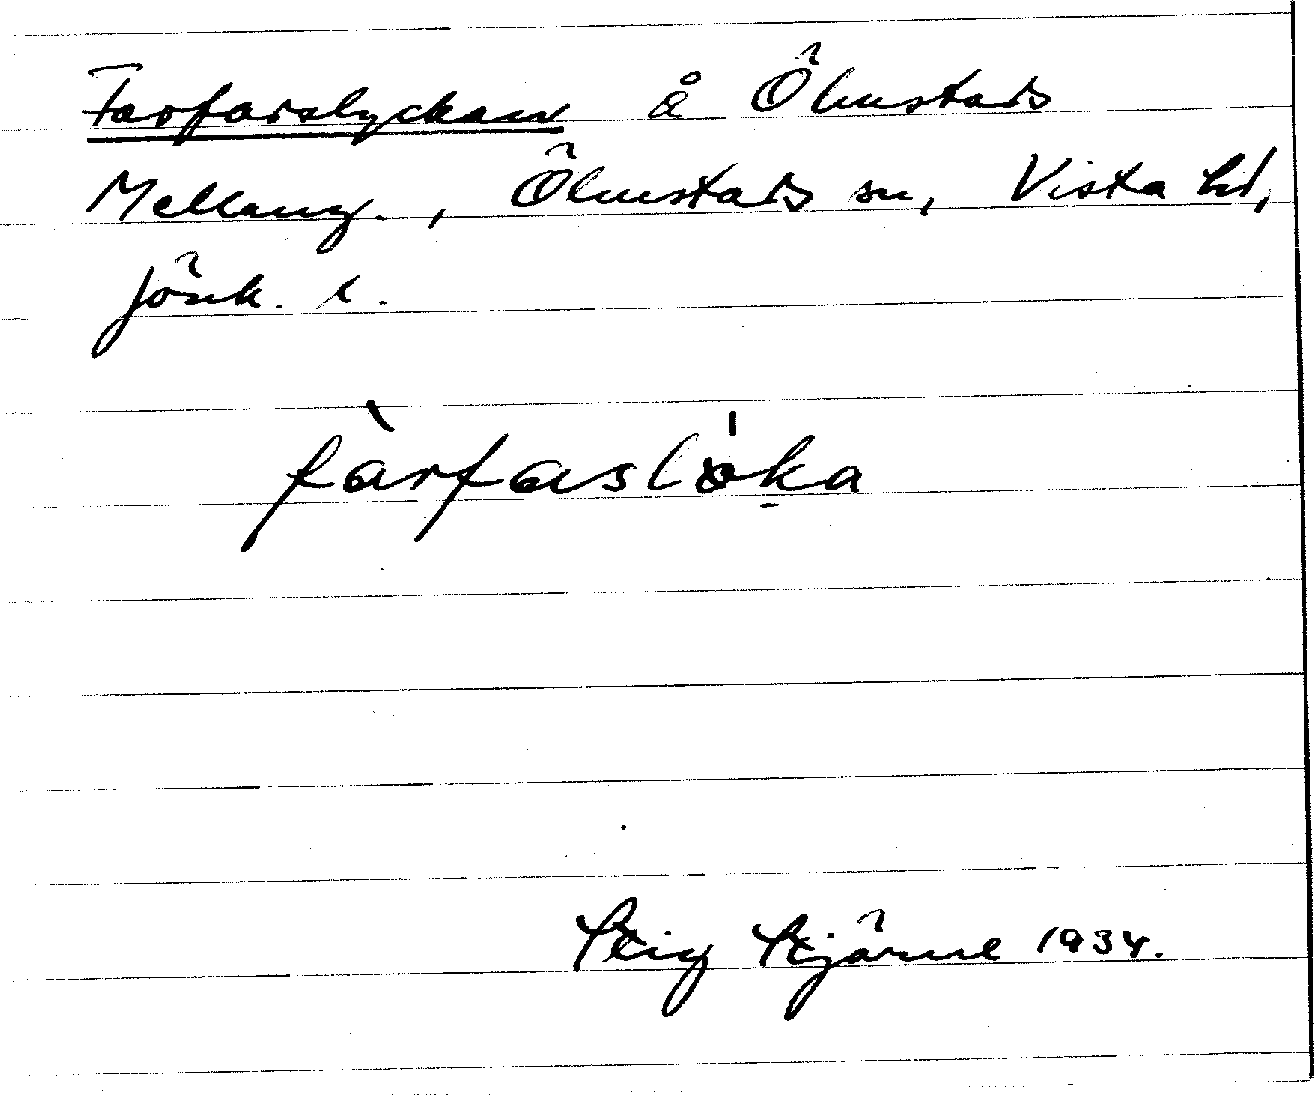 Farfarslyckan å Ölmstads
Mellang., Ölmstads sn, Vista hd,
Jönk. l.
fàrfaslöka
Stig Stjärne 1934.